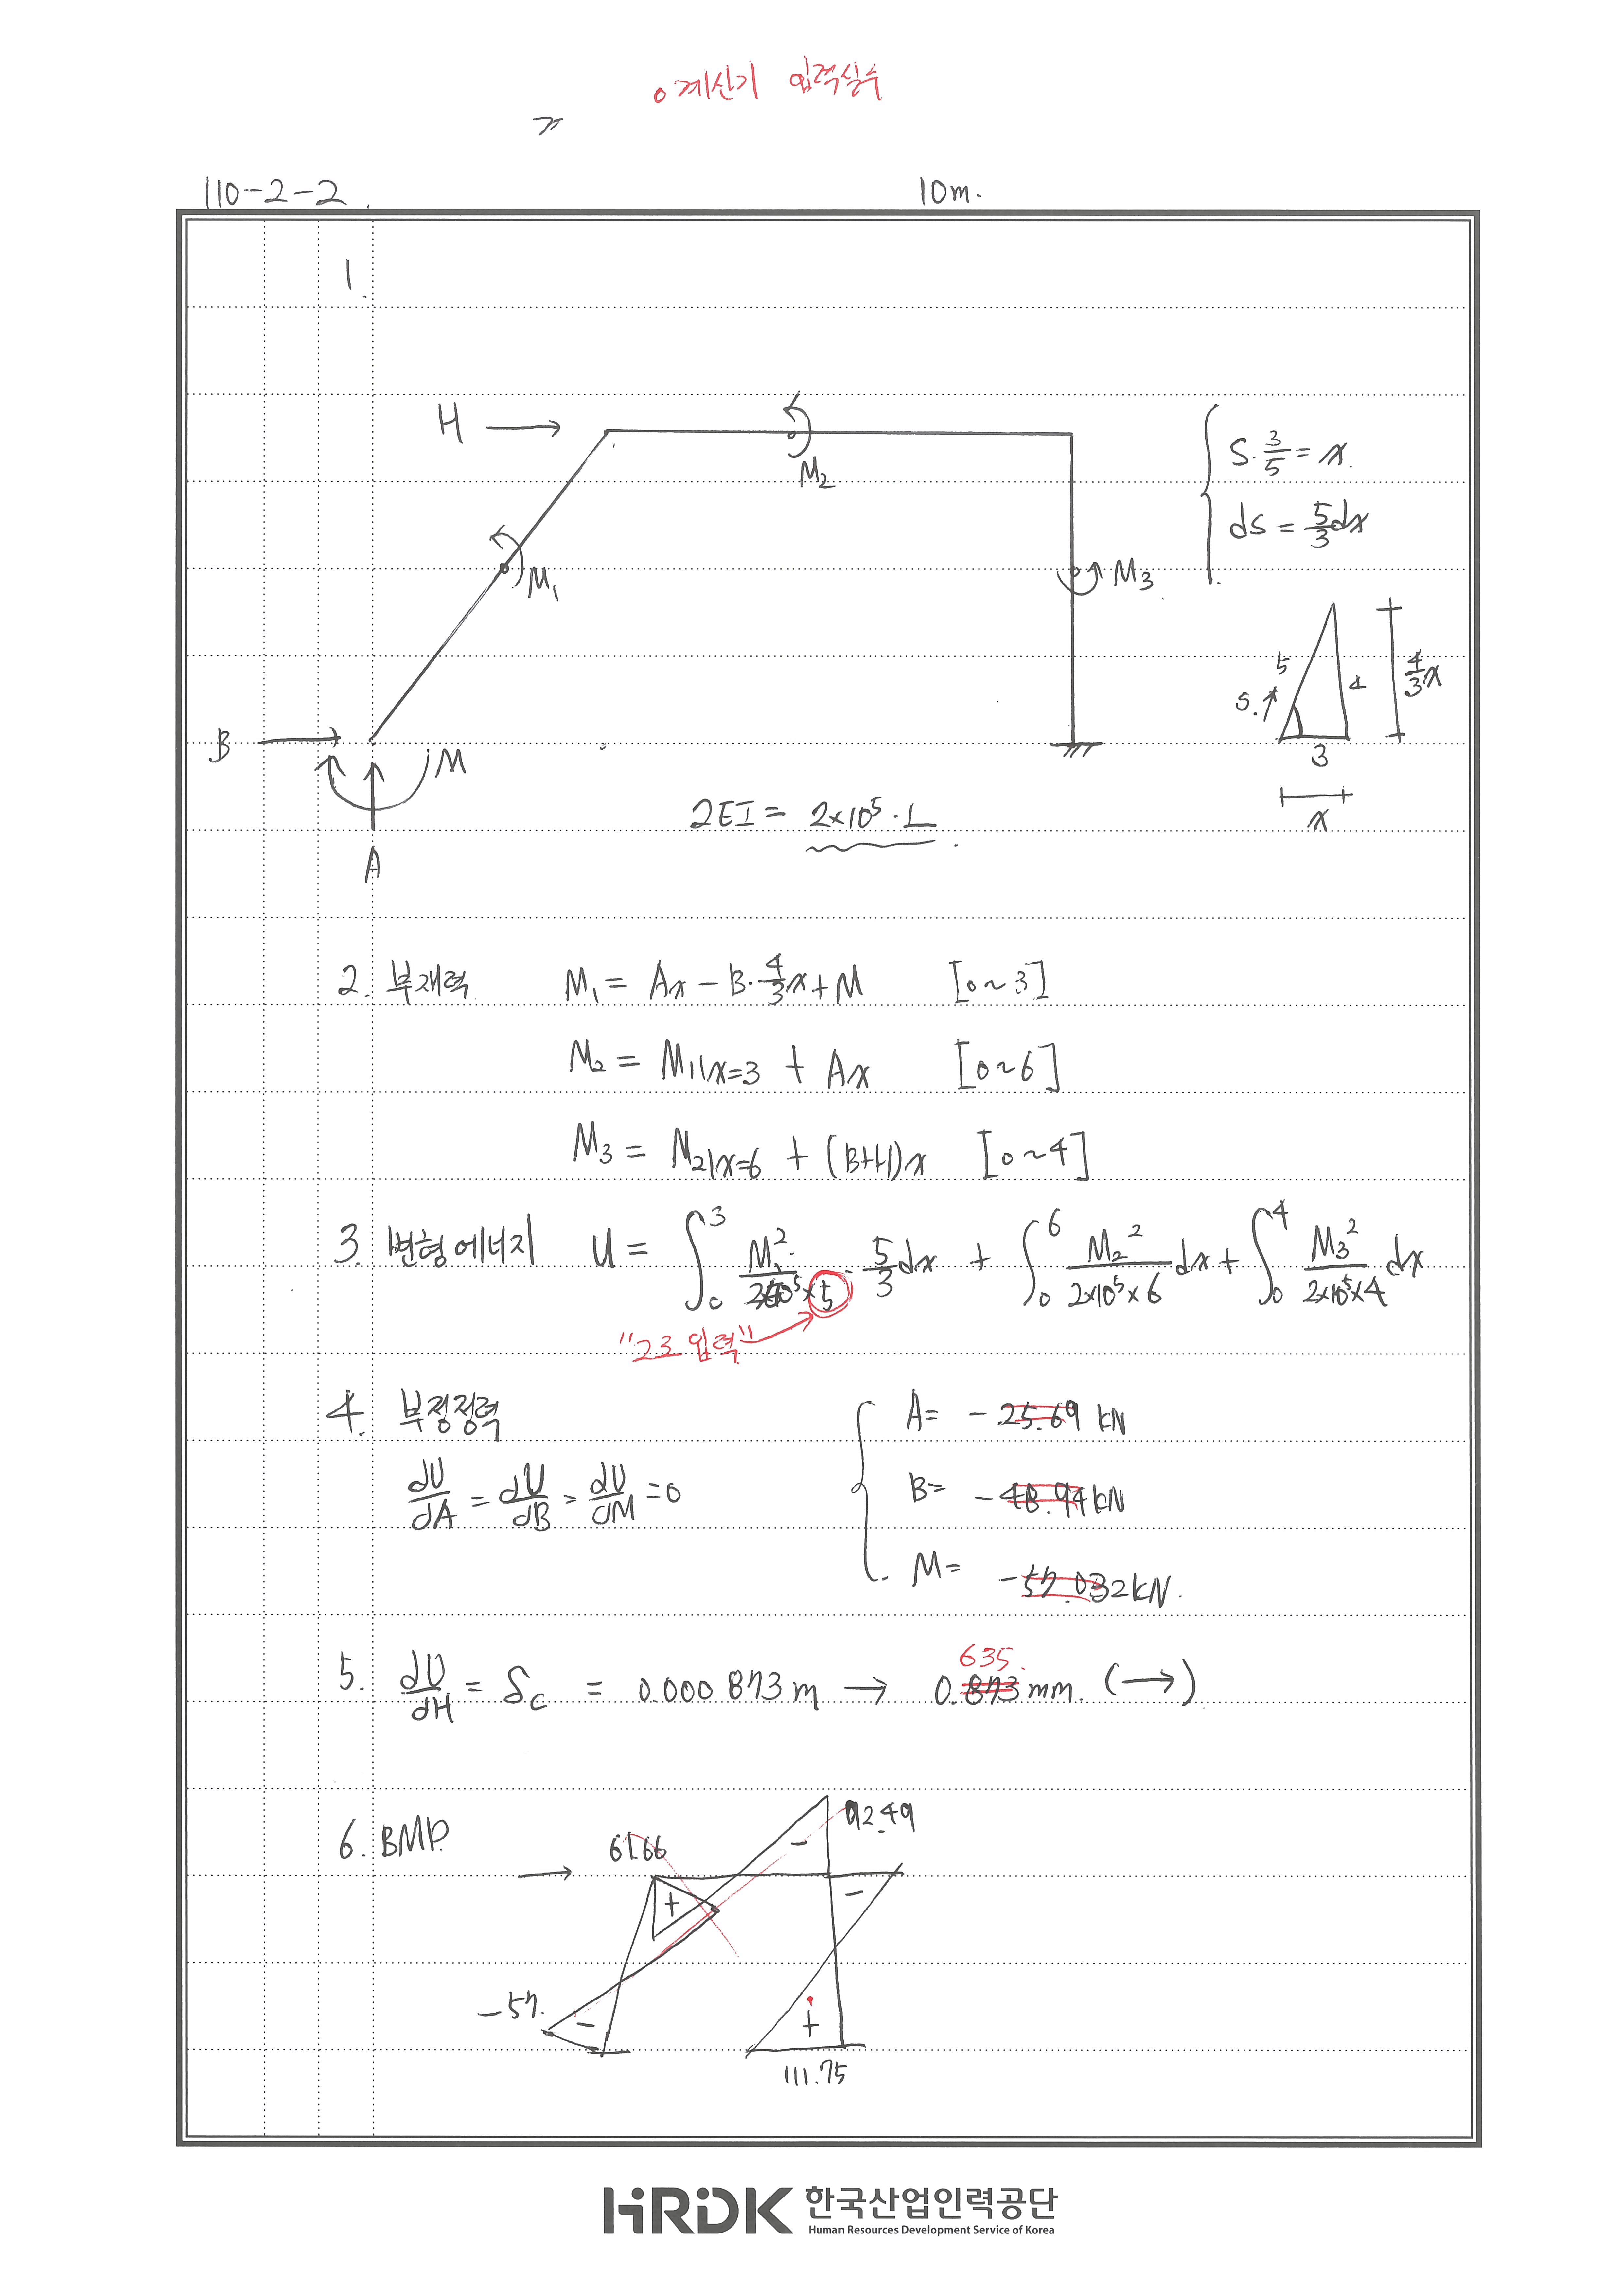 계산기 입력실수
110-2-2.
10m.
1.
H
M₂
S·3/5 = x.
dS = 5/3 dx
M₁
M₃
5
S.
4
4/3 x
3
x
B
M
A
2EI = 2×10⁵·L
2. 부재력 M₁ = Ax - B·4/3 x + M [0~3]
M₂ = M₁|x=3 + Ax [0~6]
M₃ = M₂|x=6 + (B+H)x [0~4]
3. 변형에너지 U = ∫₀³ M₁²/(2×10⁵×5) · 5/3 dx + ∫₀⁶ M₂²/(2×10⁵×6) dx + ∫₀⁴ M₃²/(2×10⁵×4) dx
"23 입력"
4. 부정정력
dU/dA = dU/dB = dU/dM = 0
A= -25.69 kN
B= -48.94 kN
M= -57.032 kN.
5. dU/dH = δc = 0.000 873 m → 0.873 mm. (→)
635.
6. BMD.
61.66
92.49
-
+
-
-57.
-
+
111.75
HRDK 한국산업인력공단
Human Resources Development Service of Korea